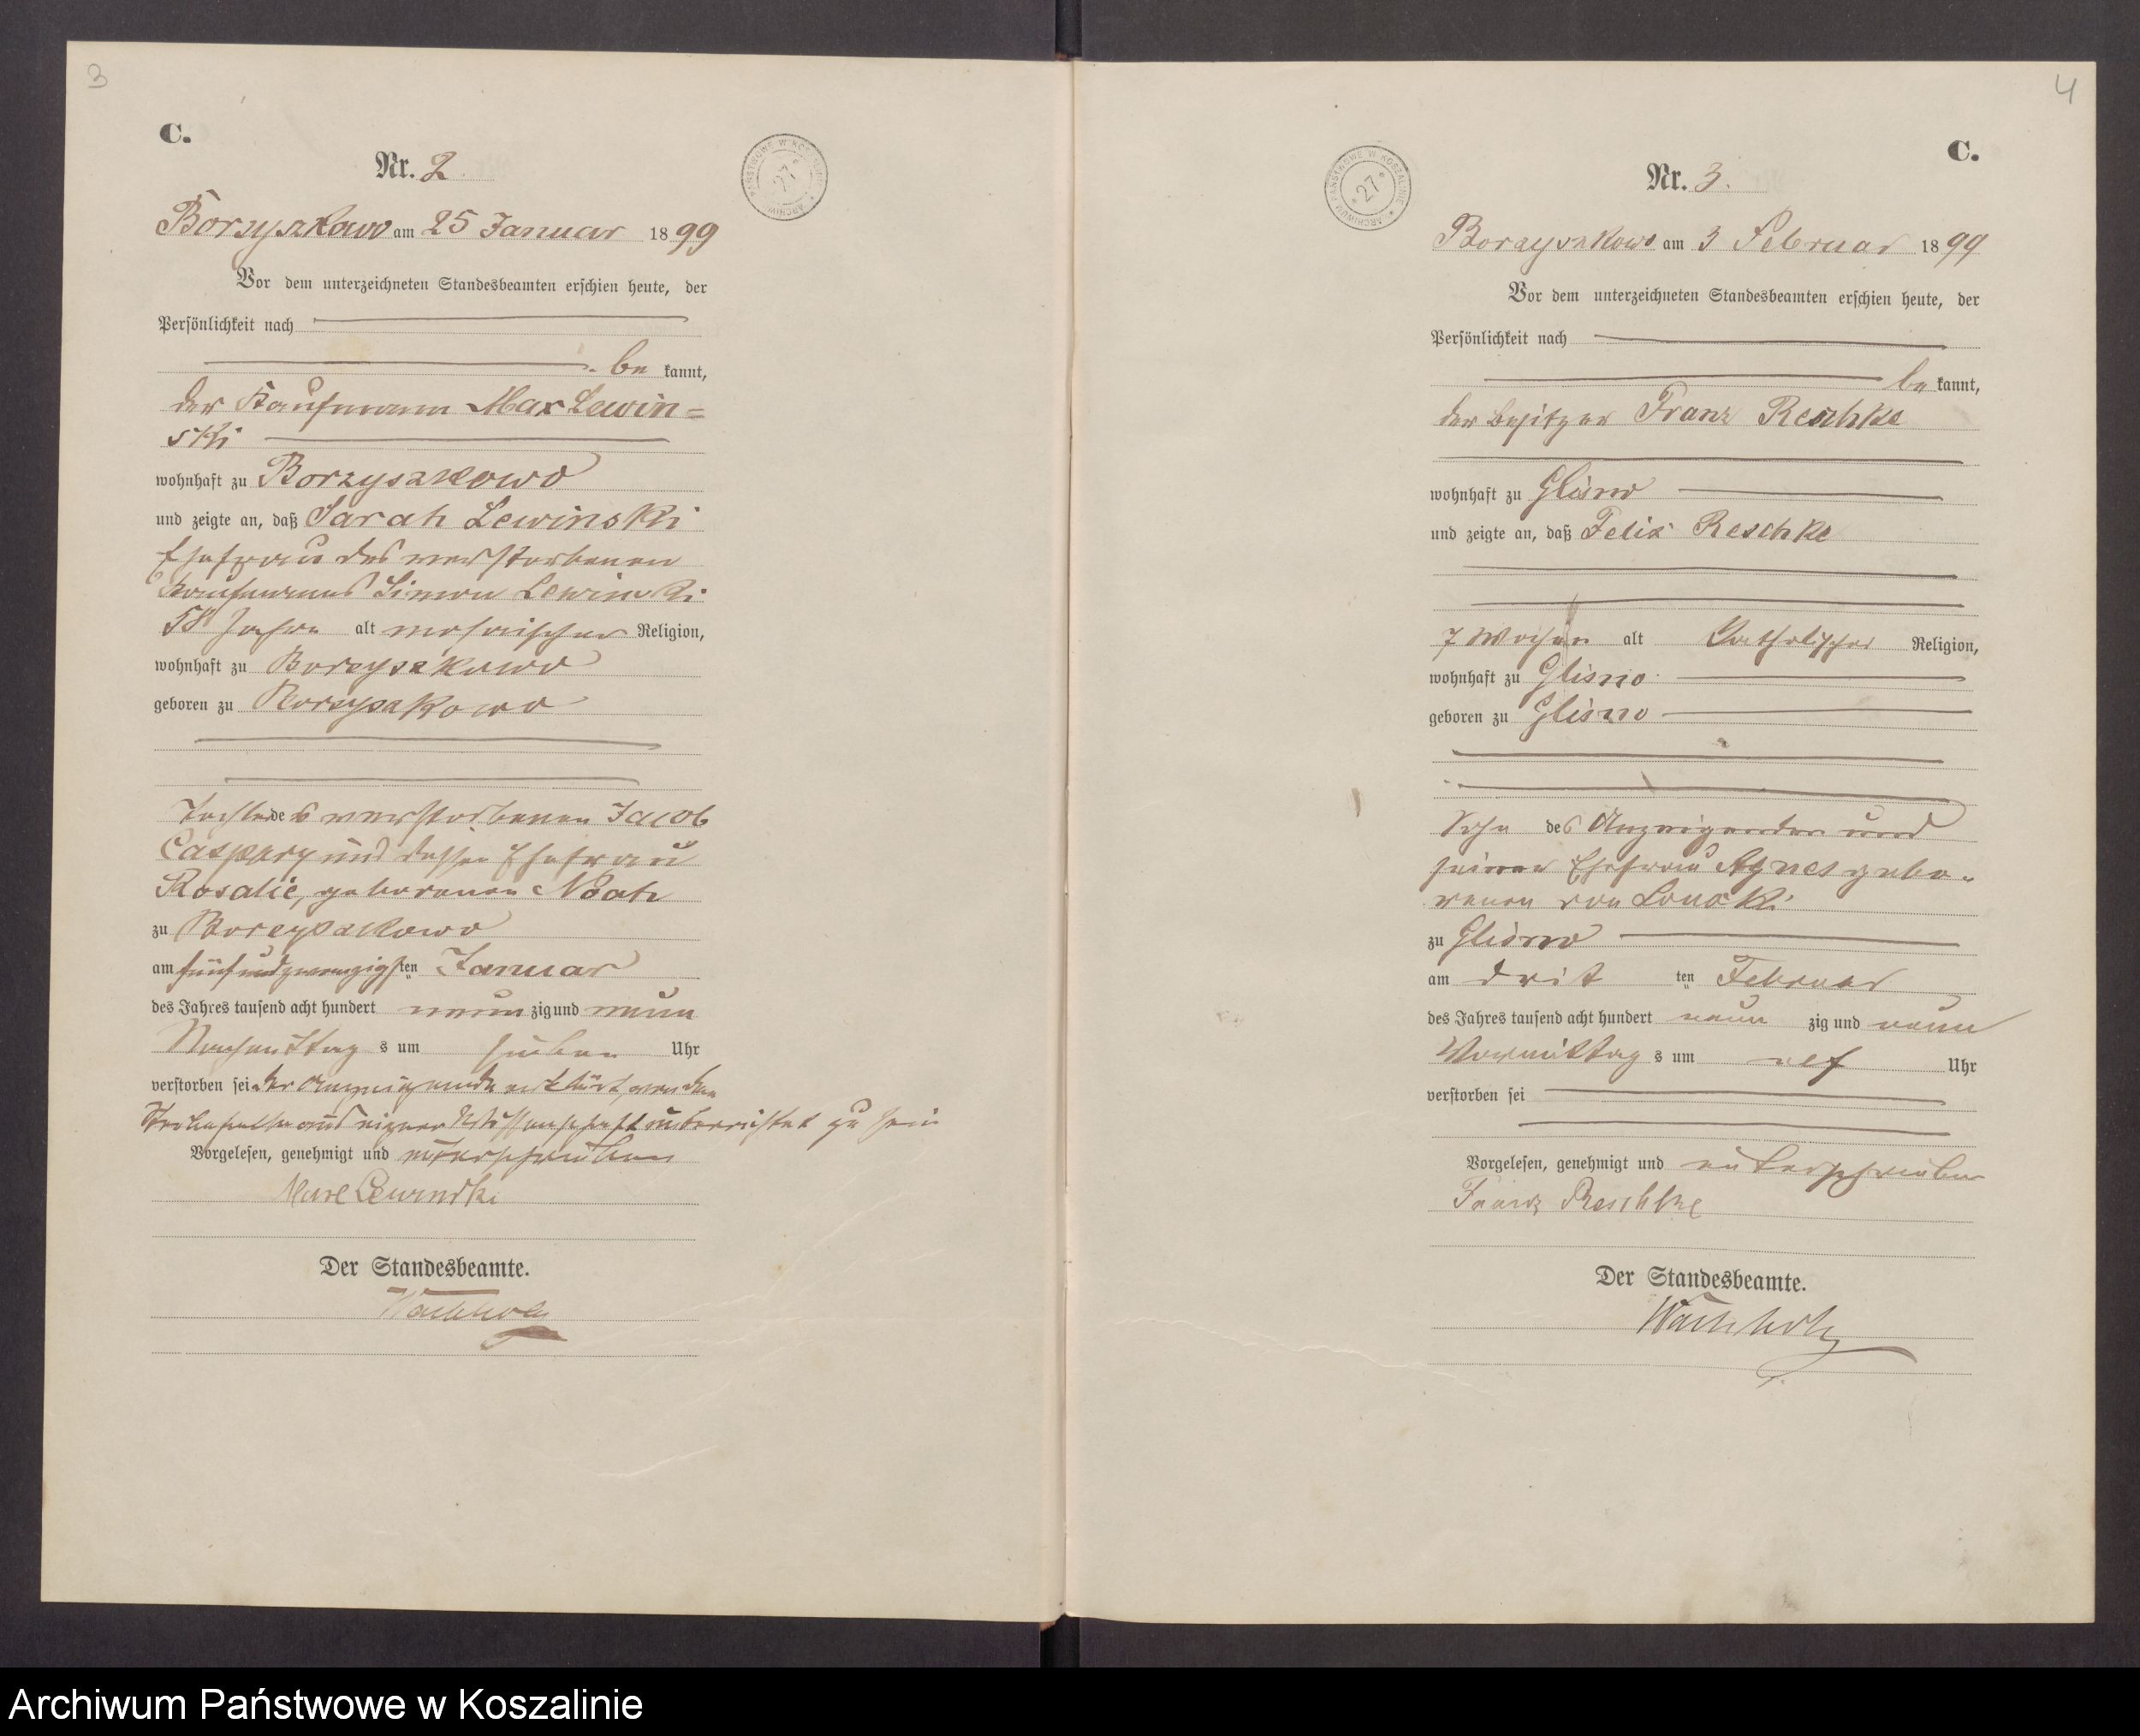 3
C.
Nr. 2.
ARCHIWUM PAŃSTWOWE W KOSZALINIE * 27 *
Borzyszkowo am 25 Januar 1899
Vor dem unterzeichneten Standesbeamten erschien heute, der
Persönlichkeit nach
be kannt,
der Kaufmann Max Lewin=
ski
wohnhaft zu Borzyszkowo
und zeigte an, daß Sarah Lewinski
Ehefrau des verstorbenen
Kaufmanns Simon Lewinski
58 Jahre alt mosaischer Religion,
wohnhaft zu Borzyszkowo
geboren zu Borzyszkowo
Tochter des verstorbenen Jacob
Caspary und dessen Ehefrau
Rosalie, geborenen Noah
zu Borzyszkowo
am fünfundzwanzigsten Januar
des Jahres tausend acht hundert neun zig und neun
Nachmittag s um sieben Uhr
verstorben sei. Der Anzeigende erklärt, von dem
Sterbefalle aus eigner Wissenschaft unterrichtet zu sein
Vorgelesen, genehmigt und unterschrieben
Max Lewinski
Der Standesbeamte.
Wachholz
4
C.
Nr. 3.
ARCHIWUM PAŃSTWOWE W KOSZALINIE * 27 *
Borzyszkowo am 3 Februar 1899
Vor dem unterzeichneten Standesbeamten erschien heute, der
Persönlichkeit nach
be kannt,
der Besitzer Franz Reschke
wohnhaft zu Glisno
und zeigte an, daß Felix Reschke
7 Wochen alt katholischer Religion,
wohnhaft zu Glisno
geboren zu Glisno
Sohn des Anzeigenden und
seiner Ehefrau Agnes gebo-
renen von Lonski
zu Glisno
am drit ten Februar
des Jahres tausend acht hundert neun zig und neun
Vormittag s um elf Uhr
verstorben sei
Vorgelesen, genehmigt und unterschrieben
Franz Reschke
Der Standesbeamte.
Wachholz
Archiwum Państwowe w Koszalinie